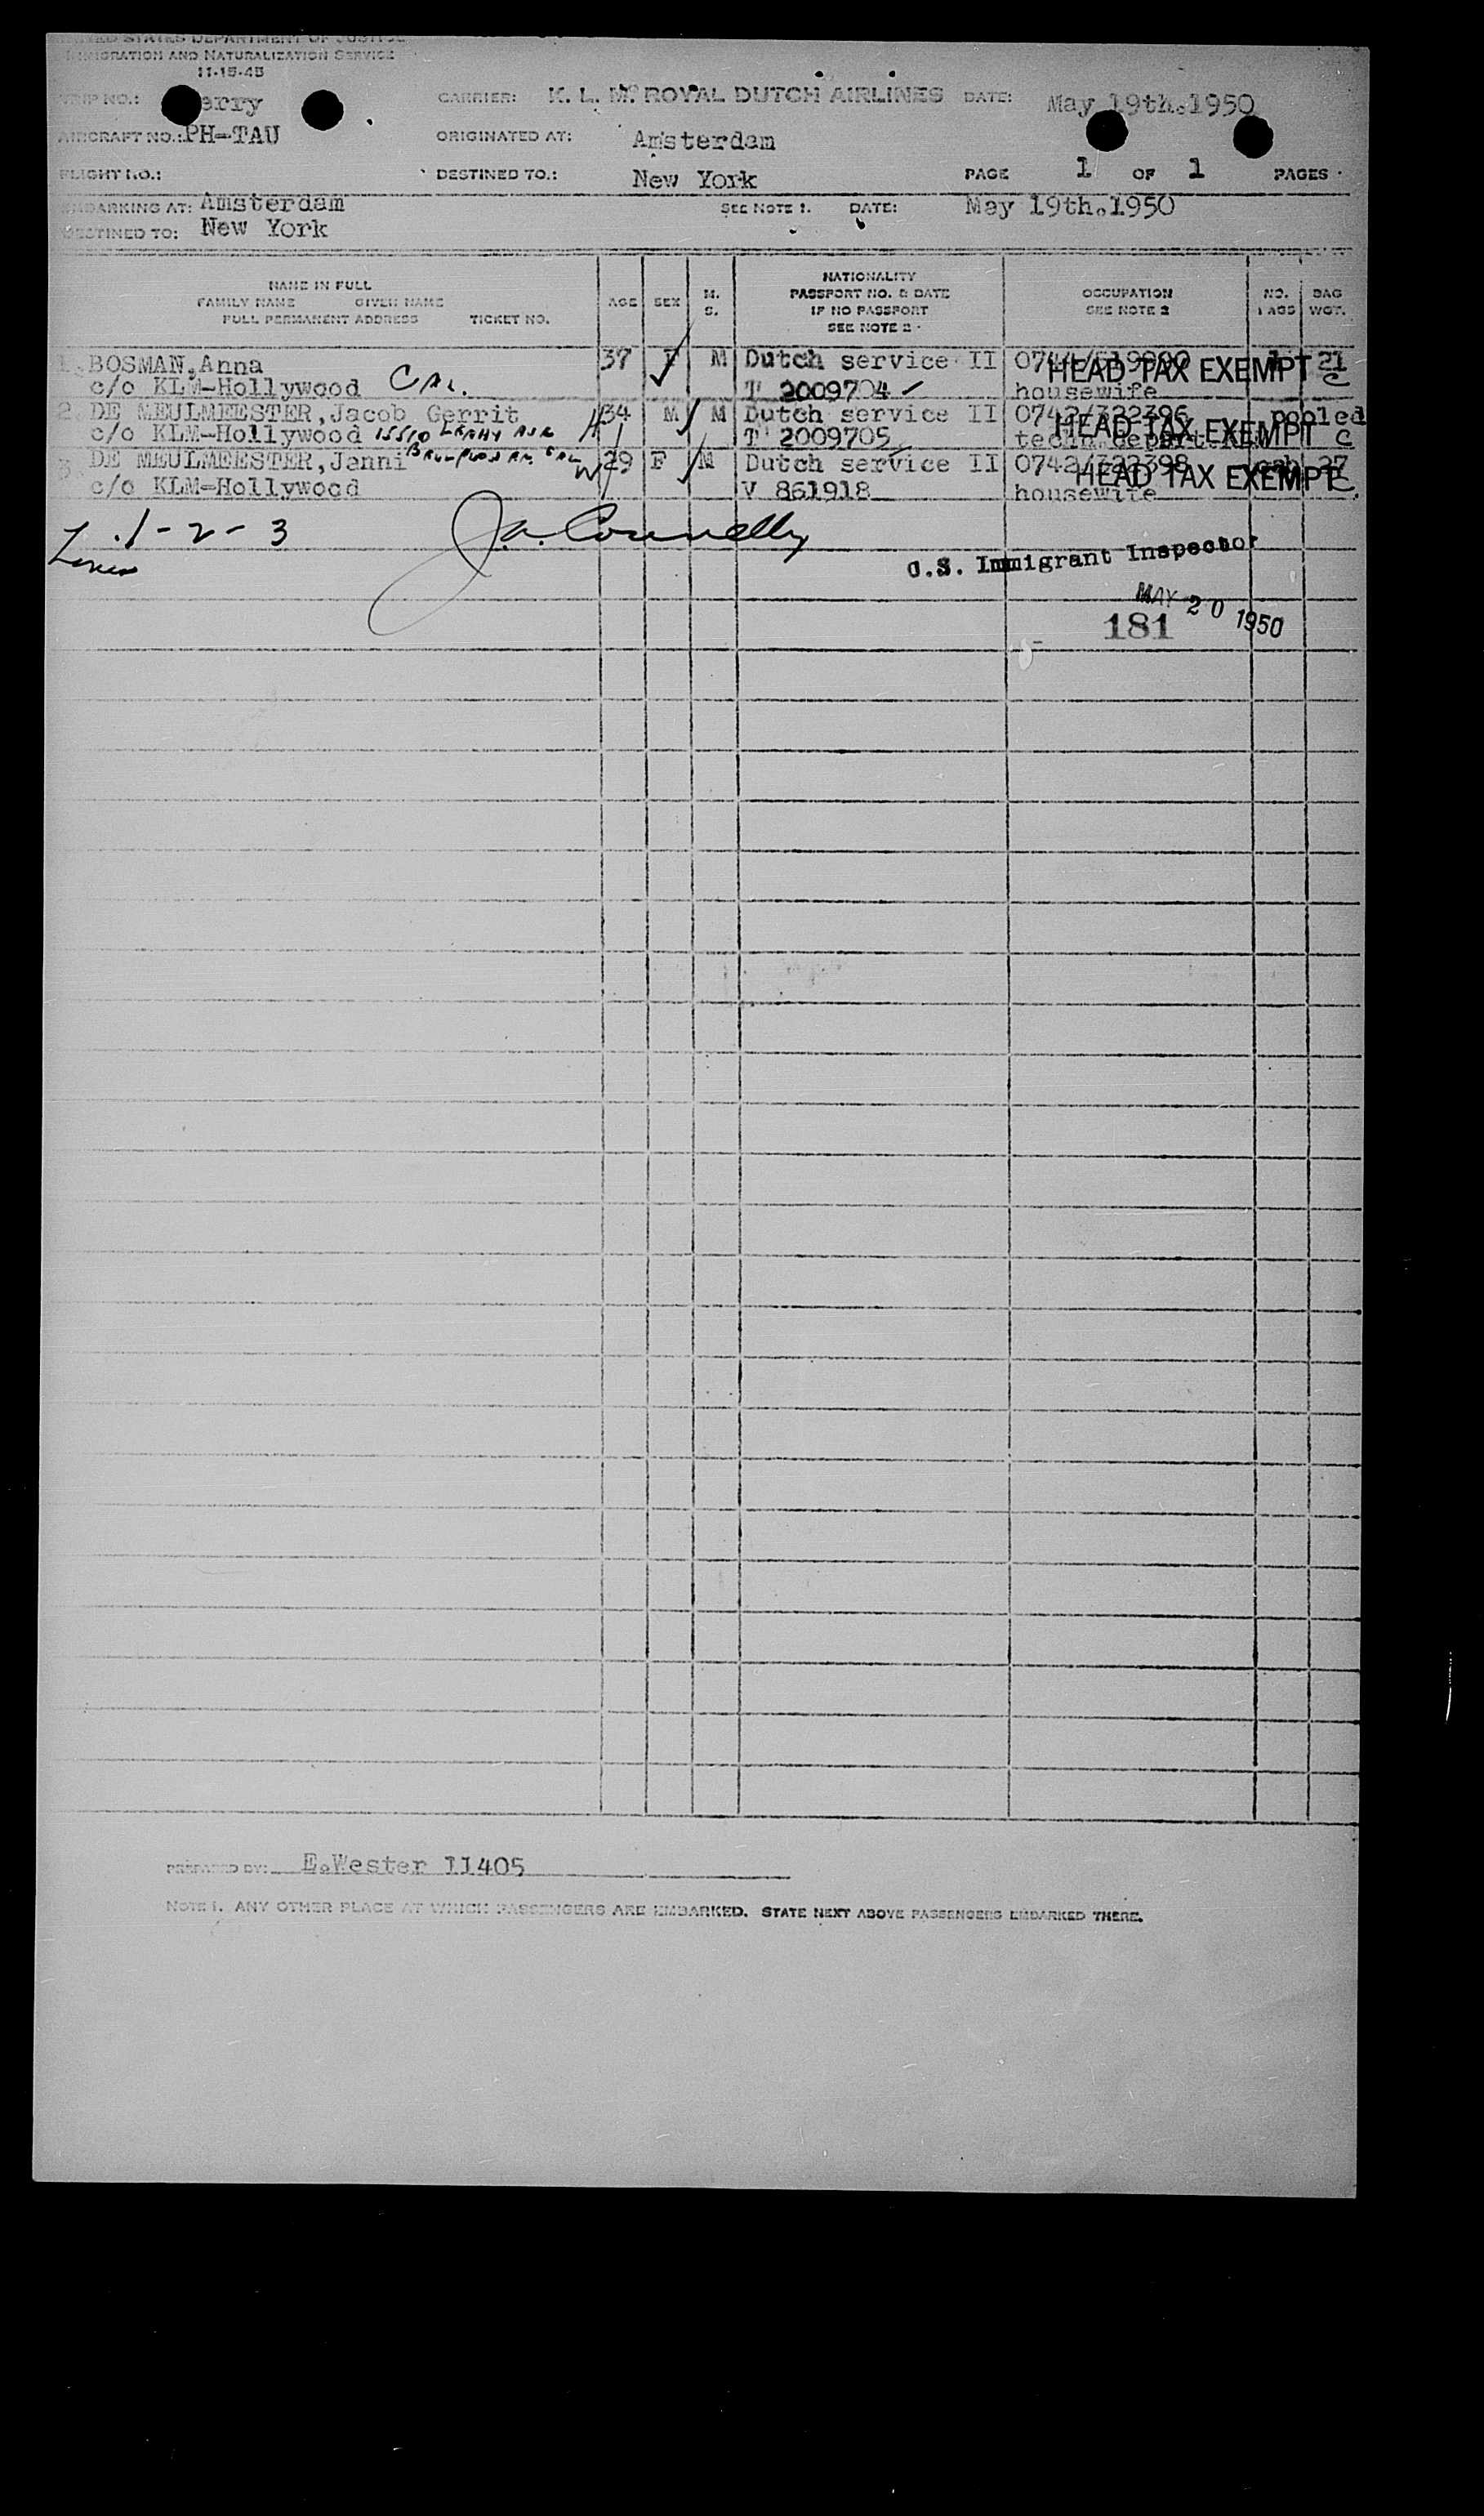 UNITED STATES DEPARTMENT OF JUSTICE
IMMIGRATION AND NATURALIZATION SERVICE
11-15-45
TRIP NO.: erry CARRIER: K. L. M. ROYAL DUTCH AIRLINES DATE: May 19th.1950
AIRCRAFT NO.: PH-TAU ORIGINATED AT: Amsterdam
FLIGHT NO.: DESTINED TO.: New York PAGE 1 OF 1 PAGES
EMBARKING AT: Amsterdam SEE NOTE 1. DATE: May 19th.1950
DESTINED TO: New York
NAME IN FULL
FAMILY NAME GIVEN NAME
FULL PERMANENT ADDRESS TICKET NO.
AGE SEX M. S.
NATIONALITY
PASSPORT NO. & DATE
IF NO PASSPORT
SEE NOTE 2
OCCUPATION
SEE NOTE 2
NO. BAGS
BAG WGT.
1. BOSMAN, Anna 37 F M Dutch service II HEAD TAX EXEMPT 21
c/o KLM-Hollywood CAL. T 2009704 housewife C
2. DE MEULMEESTER, Jacob Gerrit H 34 M M Dutch service II 0742/322396 pooled
c/o KLM-Hollywood 15510 LEAHY AVE T 2009705 techn. depart. HEAD TAX EXEMPT C
3. DE MEULMEESTER, Janni CAL W 29 F M Dutch service II 0742/322398 27
c/o KLM-Hollywood V 861918 housewife HEAD TAX EXEMPT C
Lines 1-2-3 J.A. Connelly
U.S. Immigrant Inspector
MAY 20 1950
181
PREPARED BY: E.Wester 11405
NOTE 1. ANY OTHER PLACE AT WHICH PASSENGERS ARE EMBARKED. STATE NEXT ABOVE PASSENGERS EMBARKED THERE.